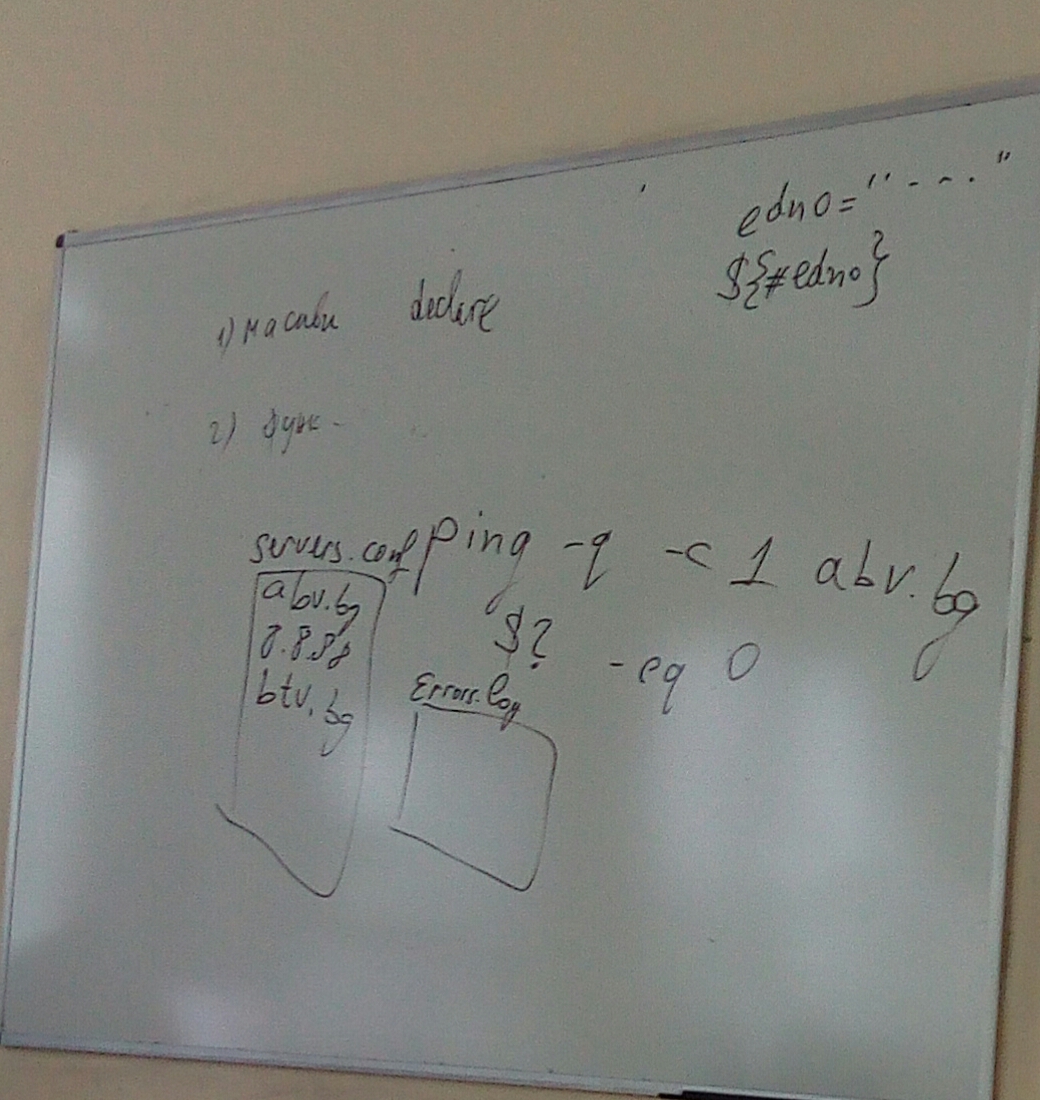 edno="----"
${#edno}
1) масиви declare
2) функ-
servers.conf
abv.bg
8.8.8.8
btv.bg
ping -q -c 1 abv.bg
$? -eq 0
Errors.log